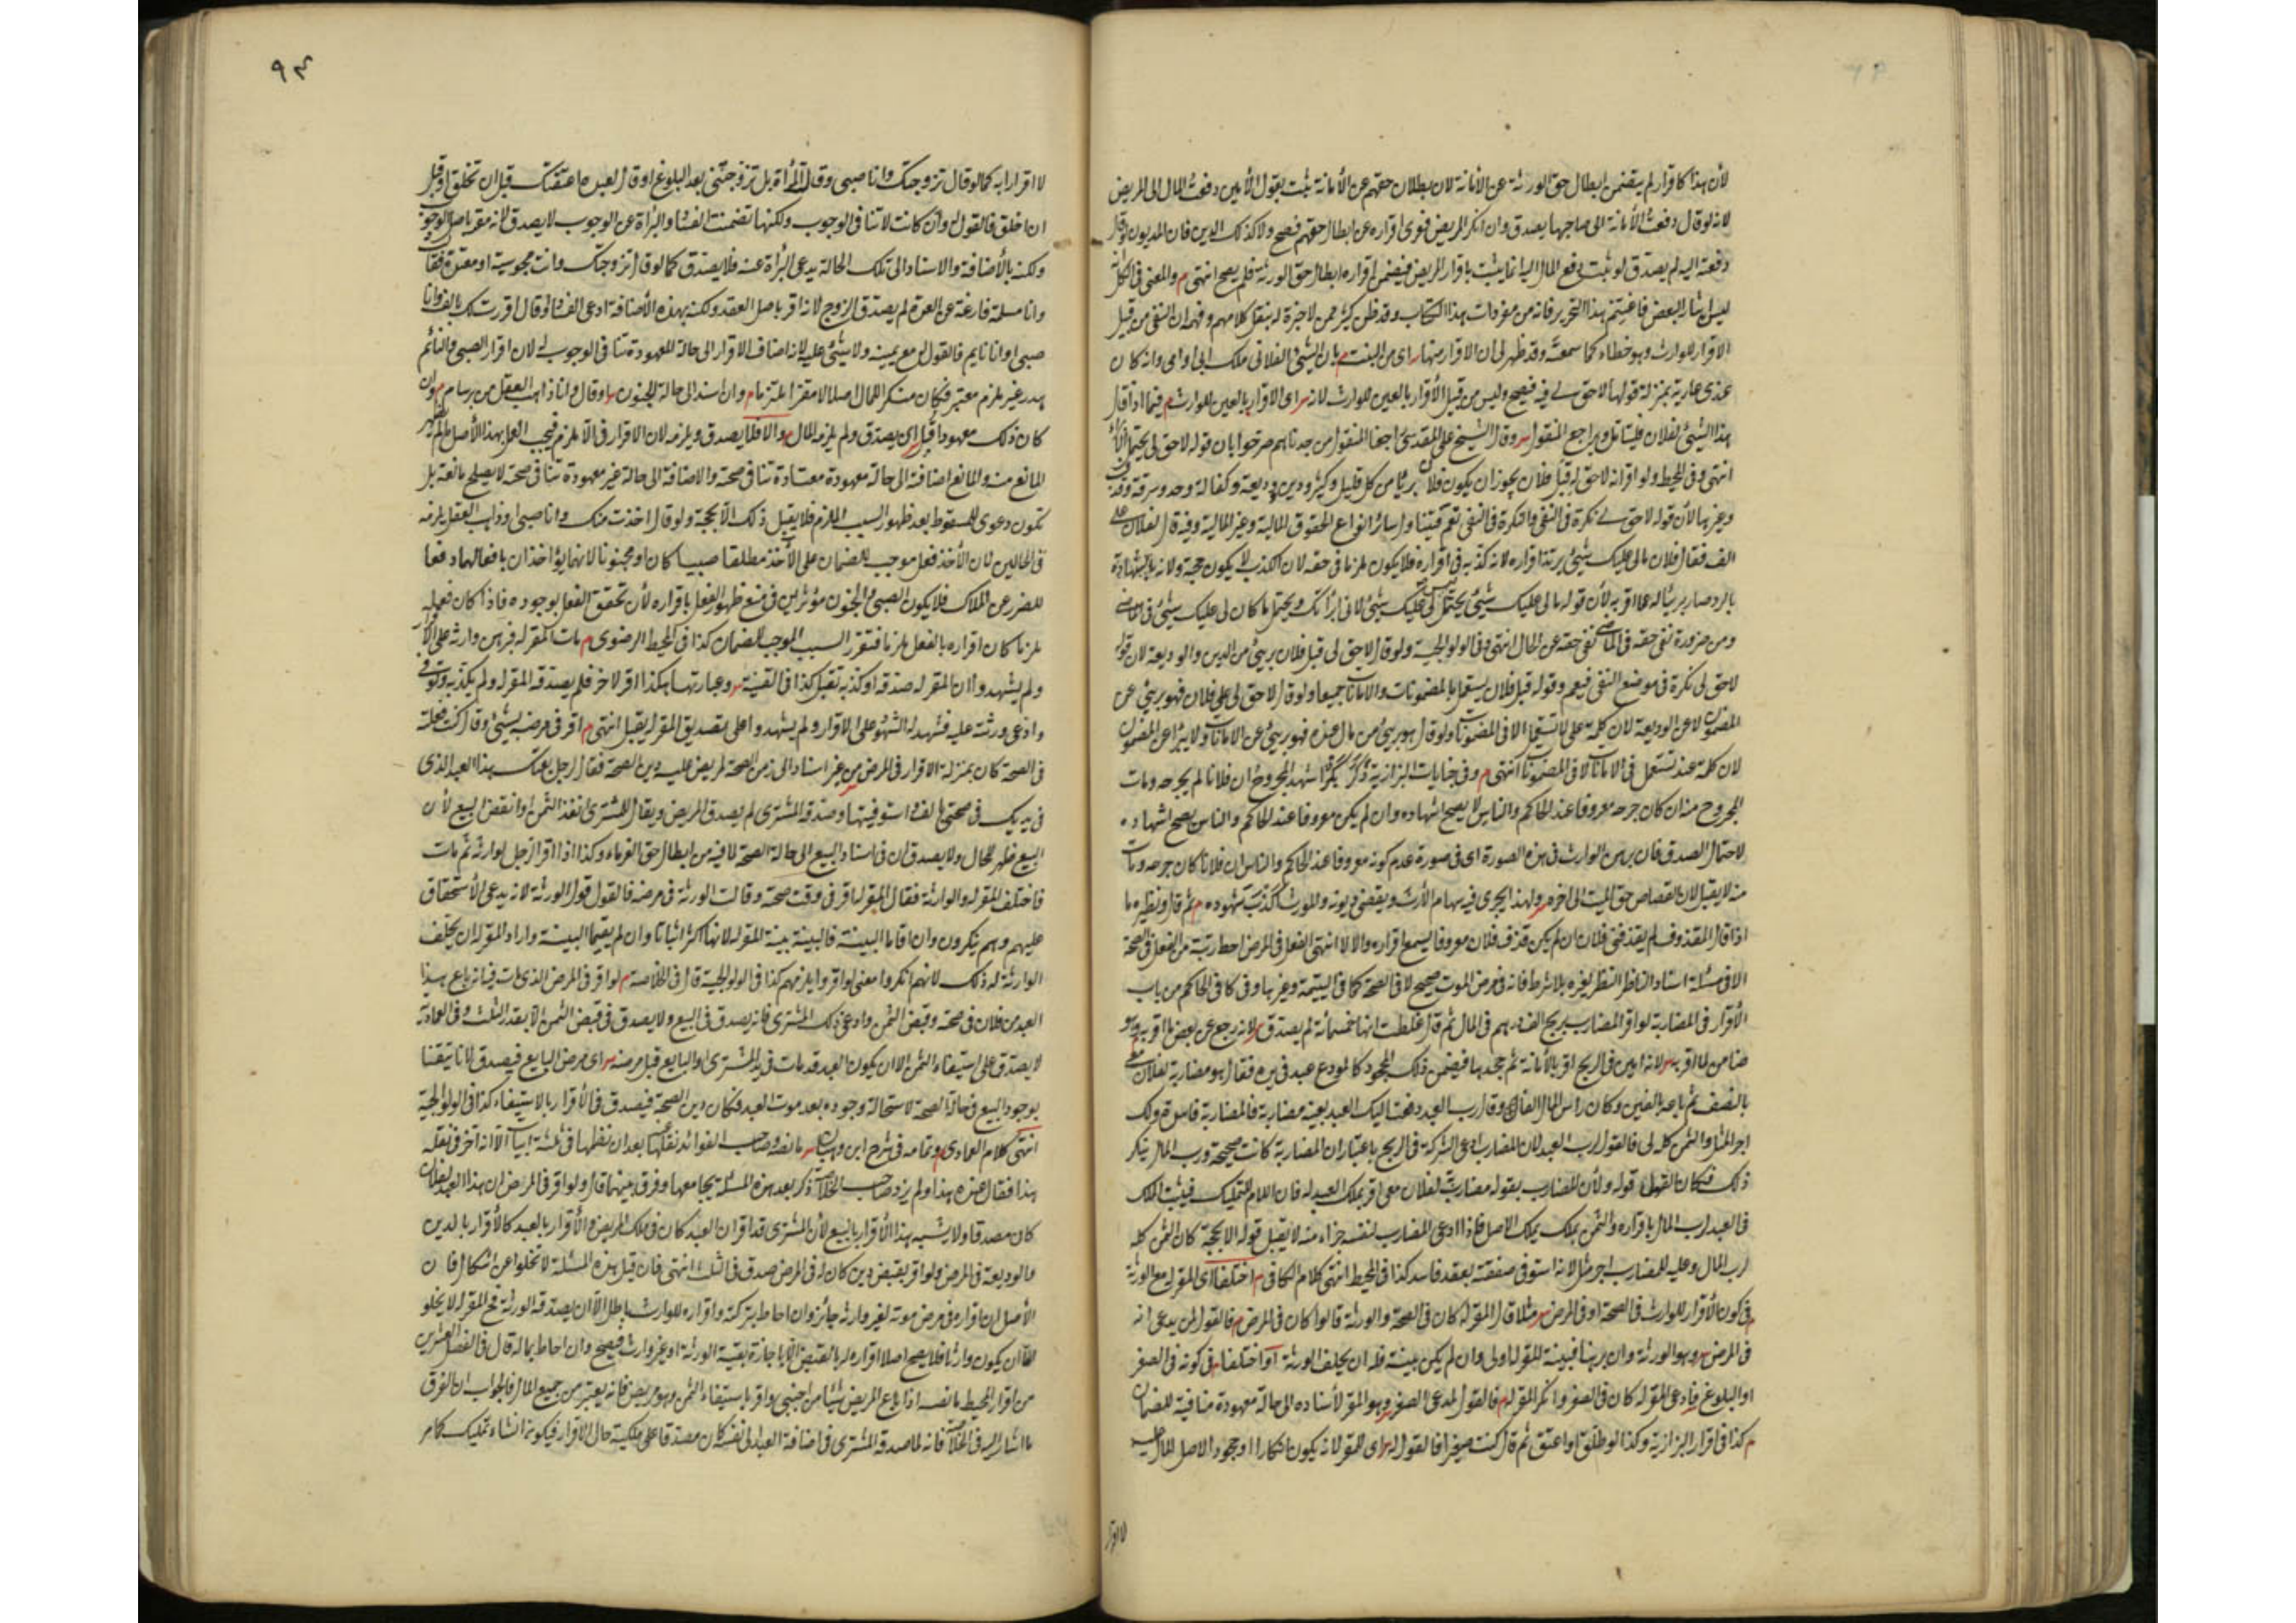 لأن هذا كاقرار لم يتضمن ابطال حق الورثة عن الأمانة لان بطلان حقهم عن الأمانة يثبت بقول الأمين دفعت المال الى المريض
لانه لو قال دفعت الأمانة الى صاحبها يصدق وان انكر المريض فنوى اقراره عن ابطال حقهم فصح ولا كذلك الدين فان المديون لو قال
دفعته اليه لم يصدق لو ثبت دفع المال اليه انما يثبت باقرار المريض فيضمن اقراره ابطال حق الورثة فلم يصح انتهى م والمعنى فى الكل انه
ليس ايثار البعض فاغتنم هذا التحرير فانه من مفردات هذا الكتاب وقد ظن كثير ممن لا خبرة له بنقل كلامهم وفهمه ان النفى من قبيل
الاقرار للوارث وهو خطاء كما سمعته وقد ظهر لى ان الاقرار منها اى من البنت م بان الشئ الفلانى ملك ابى او امى وانه كان
عندى عارية بمنزلة قولها لا حق لى فيه فيصح وليس من قبيل الأقرار بالعين للوارث لانه اى الاقرار بالعين للوارث م فيما اذا قال
هذا الشئ لفلان فليتامل ويراجع المنقول وقال الشيخ على المقدسى راجعنا المنقول من جدناهم صرحوا بان قوله لا حق لى يحتمل
انتهى وفى المحيط ولو اقر انه لا حق له قبل فلان يجوز ان يكون فلان بريئا من كل قليل وكثير ودين ووديعة وكفالة وحد وسرقة وقذف
وغيرها لأن قوله لا حق لى نكرة فى النفى والنكرة فى النفى تعم فيتناول سائر انواع الحقوق المالية وغير المالية وفيه قال لفلان على
الف فقال فلان ما لى عليك شئ يرتد اقراره لانه كذبه فى اقراره فلا يكون ملزما فى حقه لان الكذب لا يكون حجة ولانه
بالرد صار بريئا له مما اقر به لأن قوله ما لى عليك شئ يحتمل ليس لى عليك شئ لانى ابرأتك ويحتمل ما كان لى عليك شئ فى الماضى
ومن ضرورة نفى حقه فى الماضى نفى حقه عن الحال انتهى وفى الولوالجية ولو قال لا حق لى قبل فلان برئ من الدين والوديعة لان قوله
لا حق لى نكرة فى موضع النفى فيعم وقوله قبل فلان يستعمل بالمضمونات والامانات جميعا ولو قال لا حق لى على فلان فهو برئ عن
المضمون لا عن الوديعة لان كلمة على لا تستعمل الا فى المضمونات ولو قال هو برئ من مال عنده فهو برئ عن الامانات ولا يبرأ عن المضمون
لان كلمة عند تستعمل فى الامانات لا فى المضمونات انتهى م وفى جنايات البزازية ذكر بكر اشهد المجروح ان فلانا لم يجرحه ومات
المجروح منه ان كان جرحه معروفا عند الحاكم والناس لا يصح اشهاده وان لم يكن معروفا عند الحاكم والناس يصح اشهاده
لاحتمال الصدق فان برهن الوارث فى هذه الصورة اى فى صورة عدم كونه معروفا عند الحاكم والناس ان فلانا كان جرحه ومات
منه لا يقبل لان القصاص حق الميت الى اخره ولهذا يجرى فيه سهام الأرث ويقضى ديونه والمورث اكذب شهوده م ثم قال ونظيره ما
اذا قال المقذوف لم يقذفنى فلان ان لم يكن قذف فلان معروفا يسمع اقراره والا لا انتهى الفعل فى المرض احط رتبة من الفعل فى الصحة
الا فى مسئلة اسناد الناظر النظر لغيره بلا شرط فانه فى مرض الموت صحيح لا فى الصحة كما فى اليتيمة وغيرها وفى كافى الحاكم من باب
الأقرار فى المضاربة لو اقر المضارب بربح الف درهم فى المال ثم قال غلطت انها خمسمائة لم يصدق لانه رجع عن بعض ما اقر به وهو
ضامن لما اقر به لانه امين فى الربح اقر بالأمانة ثم جحدها فيضمن ذلك بالجحود كالمودع عبد فى يده فقال هو مضاربة لفلان معى
بالنصف ثم باعه بالفين وكان راس المال الفا وقال رب العبد دفعت اليك العبد بعينه مضاربة فالمضاربة فاسدة ولك
اجر المثل والثمن كله لى فالقول لرب العبد لان المضارب ادعى الشركة فى الربح باعتبار ان المضاربة كانت صحيحة ورب المال ينكر
ذلك فكان القول قوله ولأن المضارب بقوله مضاربة لفلان معى اقر بملك العبد له فان اللام للتمليك فيثبت الملك
فى العبد لرب المال باقراره والثمن يملك بملك الاصل فاذا ادعى المضارب لنفسه جزاء منه لا يقبل قوله الا بحجة كان الثمن كله
لرب المال وعليه للمضارب اجر مثله لانه استوفى منفعته بعقد فاسد كذا فى المحيط انتهى كلام الكافى م اختلفا اى المقر له مع الورثة
م فى كون الأقرار للوارث فى الصحة او فى المرض مثلا قال المقر له كان فى الصحة والورثة قالوا كان فى المرض م فالقول لمن يدعى انه
فى المرض وهو الورثة وان برهنا فبينة المقر له اولى وان لم يكن بينة فله ان يحلف الورثة او اختلفا فى كونه فى الصغر
او البلوغ فادعى المقر له كان فى الصغر وانكر المقر له م فالقول لمدعى الصغر وهو المقر لأسناده الى حالة معهودة منافية للضمان
م كذا فى اقرار البزازية وكذا لو طلق او اعتق ثم قال كنت صغيرا فالقول له اى للمقر لانه يكون انكارا او جحود الاصل المال عليه
لا اقرار
٩٣
لا اقرارا به كما لو قال تزوجتك وانا صبى وقالت المرأة بل تزوجتنى بعد البلوغ او قال لعبده اعتقتك قبل ان تخلق او قبل
ان اخلق فالقول له وان كانت لا تنافى الوجوب ولكنها تضمنت الفسا والبرأة عن الوجوب لا يصدق لانه مقر باصل الوجوب
ولكنه بالأضافة والاسناد الى تلك الحالة يدعى البرأة عنه فلا يصدق كما لو قال تزوجتك وانت مجوسية او معتدة فقالت
وانا مسلمة فارغة عن العدة لم يصدق الزوج لانه اقر باصل العقد ولكنه بهذه الأضافة ادعى الفساد ولو قال اقررت لك بالف وانا
صبى او انا نايم فالقول له مع يمينه ولا شئ عليه لانه اضاف الاقرار الى حالة المعهودة تنافى الوجوب له لان اقرار الصبى والنائم
هدر غير ملزم معتبر فكان منكرا للمال اصلا لا مقرا ملتزما م وان اسند الى حالة الجنون او قال وانا ذاهب العقل من برسام م وان
كان ذلك معهودا قبل اى يصدق ولم يلزمه المال والا فلا يصدق ويلزمه لان الاقرار فى الا ملزم فيجب العمل بهذا الأصل ما لم يظهر
المانع منه والمانع اضافة الى حالة معهودة معتادة تنافى صحته والاضافة الى حالة غير معهودة تنافى صحته لا يصلح مانعة بل
تكون دعوى للسقوط بعد ظهور السبب الملزم فلا يقبل ذلك الا بحجة ولو قال اخذت منك وانا صبى او ذاهب العقل يلزمه
فى الحالين لان الأخذ فعل موجب للضمان على الآخذ مطلقا صبيا كان او مجنونا لانهما يؤاخذان بافعالهما دفعا
للضرر عن الملاك فلا يكون الصبى والجنون مؤثرين فى منع ظهور الفعل باقراره لأن تحقق الفعل بوجوده فاذا كان فعله
ملزما كان اقراره بالفعل ملزما فتقرر السبب الموجب للضمان كذا فى المحيط الرضوى م مات المقر له فبرهن وارثه على الأقرار
ولم يشهدوا ان المقر له صدقه او كذبه تقبل كذا فى القنية وعبارتها هكذا اقر لاخر فلم يصدقه المقر له ولم يكذبه وتوفى
وادعى ورثته عليه فشهد له الشهود على الاقرار ولم يشهدوا على تصديق المقر له يقبل انتهى م اقر فى مرضه بشئ وقال كنت فعلته
فى الصحة كان بمنزلة الاقرار فى المرض من غير اسناد الى زمن الصحة مريض عليه دين الصحة فقال رجل بعتك هذا العبد الذى
فى يديك فى صحتى بالف واستوفيتها وصدقه المشترى لم يصدق المريض ويقال للمشترى انقد الثمن او انقض البيع لأن
البيع ظهر للحال ولا يصدق ان فى اسناد البيع الى حالة الصحة لما فيه من ابطال حق الغرماء وكذا اذا اقر الرجل لوارثه ثم مات
فاختلف المقر له والوارثة فقال المقر له اقر فى وقت صحته وقالت الورثة فى مرضه فالقول قول الورثة لانه يدعى الأستحقاق
عليهم وهم ينكرون وان اقاما البينة فالبينة بينة المقر له لانها اكثر اثباتا وان لم يقيما البينة واراد المقر له ان يحلف
الوارثة له ذلك لانهم انكروا معنى لو اقروا يلزمهم كذا فى الولوالجية قال فى الخلاصة م لو اقر فى المرض الذى مات فيه انه باع هذا
العبد من فلان فى صحته وقبض الثمن وادعى ذلك المشترى فانه يصدق فى البيع ولا يصدق فى قبض الثمن الا بقدر الثلث وفى العمادية
لا يصدق على استيفاء الثمن الا ان يكون العبد قد مات فى يد المشترى او البايع قبل مرضه اى مرض البايع فيصدق لانا تيقنا
بوجود البيع فى حالة الصحة لاستحالة وجوده بعد موت العبد فكان دين الصحة فيصدق فى الأقرار بالاستيفاء كذا فى الولوالجية
انتهى كلام العمادى وتمامه فى شرح ابن وهبان ما نصه وصاحب الفوائد نقلها بعد ان نظمها فى ثلثة ابيات الا انه اخر فى نقله
هذا فقال عنده هذا ولم يزد صاحب الخلاصة ذكر بعد هذه المسئلة يجامعها وفرق بينهما قال ولو اقر فى المرض ان هذا العبد لفلان
كان مصدقا ولا يشبه هذا الأقرار بالبيع لأن المشترى قد اقر ان العبد كان فى ملك المريض والأقرار بالعبد كالأقرار بالدين
والوديعة فى المرض ولو اقر بقبض دين كان له فى المرض صدق فى الثلث انتهى فان قيل هذه المسئلة لا تخلوا عن اشكال فان
الأصل ان اقراره فى مرض موته لغير وارثه جائز وان احاط بتركته واقراره للوارث باطل الا ان يصدقه الورثة فح المقر له لا يخلو
اما ان يكون وارثا فلا يصح اصلا اقراره له بالقبض الا باجازة بقية الورثة او غير وارث فيصح وان احاط بماله قال فى الفصل العشرين
من اقرار المحيط ما نصه اذا باع المريض شيئا من اجنبى واقر باستيفاء الثمن وهو مريض فانه يعتبر من جميع المال فالجواب ان الفرق
ما اشار اليه فى الخلاصة فانه لما صدقه المشترى فى اضافة العبد الى نفسه كان مصدقا على ملكيته حال الاقرار فيكون انشاء تمليك كامر